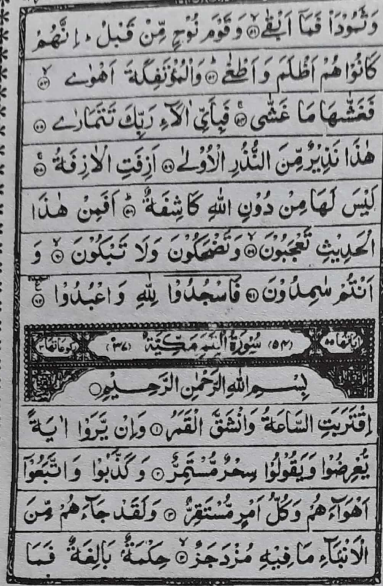 وَثَمُودَا۟ فَمَآ اَبْقٰى ۙ﴿٥١﴾ وَقَوْمَ نُوْحٍ مِّنْ قَبْلُ ؕ اِنَّهُمْ
كَانُوْا هُمْ اَظْلَمَ وَاَطْغٰى ؕ﴿٥٢﴾ وَالْمُؤْتَفِكَةَ اَهْوٰى ۙ﴿٥٣﴾
فَغَشّٰىهَا مَا غَشّٰى ۚ﴿٥٤﴾ فَبِاَىِّ اٰلَآءِ رَبِّكَ تَتَمَارٰى ﴿٥٥﴾
هٰذَا نَذِيْرٌ مِّنَ النُّذُرِ الْاُوْلٰى ﴿٥٦﴾ اَزِفَتِ الْاٰزِفَةُ ۚ﴿٥٧﴾
لَيْسَ لَهَا مِنْ دُوْنِ اللّٰهِ كَاشِفَةٌ ؕ﴿٥٨﴾ اَفَمِنْ هٰذَا
الْحَدِيْثِ تَعْجَبُوْنَ ۙ﴿٥٩﴾ وَتَضْحَكُوْنَ وَلَا تَبْكُوْنَ ۙ﴿٦٠﴾ وَ
اَنْتُمْ سٰمِدُوْنَ ﴿٦١﴾ فَاسْجُدُوْا لِلّٰهِ وَاعْبُدُوْا ﴿٦٢﴾
اٰيَاتُهَا ٥٥ (٥٤) سُوْرَةُ الْقَمَرِ مَكِّيَّةٌ (٣٧) رُكُوْعَاتُهَا ٣
بِسْمِ اللّٰهِ الرَّحْمٰنِ الرَّحِيْمِ
اِقْتَرَبَتِ السَّاعَةُ وَانْشَقَّ الْقَمَرُ ﴿١﴾ وَاِنْ يَّرَوْا اٰيَةً
يُّعْرِضُوْا وَيَقُوْلُوْا سِحْرٌ مُّسْتَمِرٌّ ﴿٢﴾ وَكَذَّبُوْا وَاتَّبَعُوْٓا
اَهْوَآءَهُمْ وَكُلُّ اَمْرٍ مُّسْتَقِرٌّ ﴿٣﴾ وَلَقَدْ جَآءَهُمْ مِّنَ
الْاَنْۢبَآءِ مَا فِيْهِ مُزْدَجَرٌ ۙ﴿٤﴾ حِكْمَةٌۢ بَالِغَةٌ فَمَا